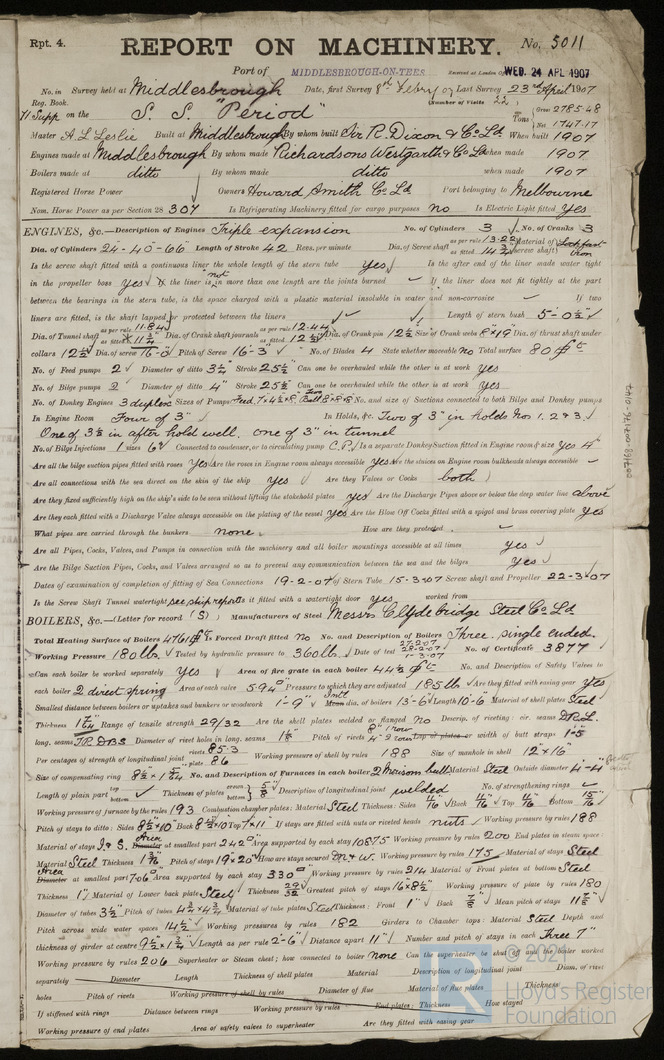 Rpt. 4.
REPORT ON MACHINERY. No. 5011
Port of MIDDLESBROUGH-ON-TEES Received at London Office WED. 24 APL 1907
No. in Survey held at Middlesbrough Date, first Survey 8th Febry 07 Last Survey 23rd April 1907
Reg. Book. (Number of Visits 22)
71 Supp. on the S. S. "Period" Tons Gross 2785.48
1747.17
Master A. L. Leslie Built at Middlesbrough By whom built Sir R. Dixon & Co. Ld. When built 1907
Engines made at Middlesbrough By whom made Richardsons Westgarth & Co. Ld. when made 1907.
Boilers made at ditto By whom made ditto when made 1907
Registered Horse Power Owners Howard Smith Co. Ld. Port belonging to Melbourne
Nom. Horse Power as per Section 28 307 Is Refrigerating Machinery fitted for cargo purposes no Is Electric Light fitted Yes
ENGINES, &c.—Description of Engines Triple expansion No. of Cylinders 3 No. of Cranks 3
Dia. of Cylinders 24-40-66" Length of Stroke 42 Revs. per minute Dia. of Screw shaft as per rule 13.22 as fitted 14 3/4 Material of screw shaft
Is the screw shaft fitted with a continuous liner the whole length of the stern tube yes Is the after end of the liner made water tight
in the propeller boss yes If the liner is not in more than one length are the joints burned If the liner does not fit tightly at the part
between the bearings in the stern tube, is the space charged with a plastic material insoluble in water and non-corrosive If two
liners are fitted, is the shaft lapped or protected between the liners Length of stern bush 5-0 1/2"
Dia. of Tunnel shaft as per rule 11.84 Dia. of Crank shaft journals as per rule 12.44 as fitted 12 1/2 Dia. of Crank pin 12 1/2 Size of Crank webs 8"x19" Dia. of thrust shaft under
collars 12 1/2 Dia. of screw 16-0 Pitch of Screw 16-3 No. of Blades 4 State whether moveable no Total surface 80
No. of Feed pumps 2 Diameter of ditto 3 1/2" Stroke 25 1/2 Can one be overhauled while the other is at work yes
No. of Bilge pumps 2 Diameter of ditto 4" Stroke 25 1/2 Can one be overhauled while the other is at work Yes
No. of Donkey Engines 3 duplex Sizes of Pumps Feed, 7x4 1/2x8. Ball 8x8x8 No. and size of Suctions connected to both Bilge and Donkey pumps
In Engine Room Four of 3" In Holds, &c. Two of 3" in holds Nos 1. 2 & 3.
One of 3 1/2 in after hold well. one of 3" in tunnel
No. of Bilge Injections 1 sizes 6" Connected to condenser, or to circulating pump C.P. Is a separate Donkey Suction fitted in Engine room & size Yes 4"
Are all the bilge suction pipes fitted with roses Yes Are the roses in Engine room always accessible Yes Are the sluices on Engine room bulkheads always accessible
Are all connections with the sea direct on the skin of the ship yes Are they Valves or Cocks both
Are they fixed sufficiently high on the ship's side to be seen without lifting the stokehold plates yes Are the Discharge Pipes above or below the deep water line above
Are they each fitted with a Discharge Valve always accessible on the plating of the vessel yes Are the Blow Off Cocks fitted with a spigot and brass covering plate yes
What pipes are carried through the bunkers none. How are they protected
Are all Pipes, Cocks, Valves, and Pumps in connection with the machinery and all boiler mountings accessible at all times yes
Are the Bilge Suction Pipes, Cocks, and Valves arranged so as to prevent any communication between the sea and the bilges Yes
Dates of examination of completion of fitting of Sea Connections 19-2-07 of Stern Tube 15-3-07 Screw shaft and Propeller 22-3-07
Is the Screw Shaft Tunnel watertight see ship report Is it fitted with a watertight door yes worked from
BOILERS, &c.—(Letter for record (S) Manufacturers of Steel Messrs Clydebridge Steel Co. Ld
Total Heating Surface of Boilers 4761 Is Forced Draft fitted no No. and Description of Boilers Three, single ended.
Working Pressure 180 lbs. Tested by hydraulic pressure to 360 lbs. Date of test 27-2-07 28-2-07 1-3-07 No. of Certificate 3877
Can each boiler be worked separately Yes Area of fire grate in each boiler 44 1/2 No. and Description of Safety Valves to
each boiler 2 direct spring Area of each valve 5.94 Pressure to which they are adjusted 185 lbs Are they fitted with easing gear Yes
Smallest distance between boilers or uptakes and bunkers or woodwork 1-9" dia. of boilers 13-6 Length 10-6 Material of shell plates Steel
Thickness Range of tensile strength 29/32 Are the shell plates welded or flanged no Descrip. of riveting: cir. seams DR.L.
long. seams TR.DBS Diameter of rivet holes in long. seams Pitch of rivets width of butt straps 1-5
Per centages of strength of longitudinal joint rivets 85.3 plate 86 Working pressure of shell by rules 188 Size of manhole in shell 12"x16"
Size of compensating ring No. and Description of Furnaces in each boiler 2 Morison bulb Material Steel Outside diameter 4-4
Length of plain part top bottom Thickness of plates crown bottom 5/8 Description of longitudinal joint welded No. of strengthening rings
Working pressure of furnace by the rules 193 Combustion chamber plates: Material Steel Thickness: Sides Back Top Bottom
Pitch of stays to ditto: Sides Back Top 7x11 If stays are fitted with nuts or riveted heads nuts Working pressure by rules 188
Material of stays I. & S. Diameter at smallest part Area supported by each stay Working pressure by rules 200 End plates in steam space:
Material Steel Thickness Pitch of stays 19x20 How are stays secured DN & W. Working pressure by rules 175 Material of stays Steel
Diameter at smallest part 706 Area supported by each stay 330 Working pressure by rules 214 Material of Front plates at bottom Steel
Thickness 1" Material of Lower back plate Steel Thickness 29/32 Greatest pitch of stays 16x8 1/2" Working pressure of plate by rules 180
Diameter of tubes 3 1/2 Pitch of tubes 4 3/4 x 4 3/4 Material of tube plates Steel Thickness: Front 1" Back Mean pitch of stays
Pitch across wide water spaces 14 1/2" Working pressures by rules 182 Girders to Chamber tops: Material Steel Depth and
thickness of girder at centre Length as per rule 2-6" Distance apart 11" Number and pitch of stays in each Three 7"
Working pressure by rules 206 Superheater or Steam chest; how connected to boiler none Can the superheater be shut off and the boiler worked
separately Diameter Length Thickness of shell plates Material Description of longitudinal joint Diam. of rivet
holes Pitch of rivets Working pressure of shell by rules Diameter of flue Material of flue plates Thickness
If stiffened with rings Distance between rings Working pressure by rules End plates: Thickness How stayed
Working pressure of end plates Area of safety valves to superheater Are they fitted with easing gear
© 2021
Lloyd's Register
Foundation